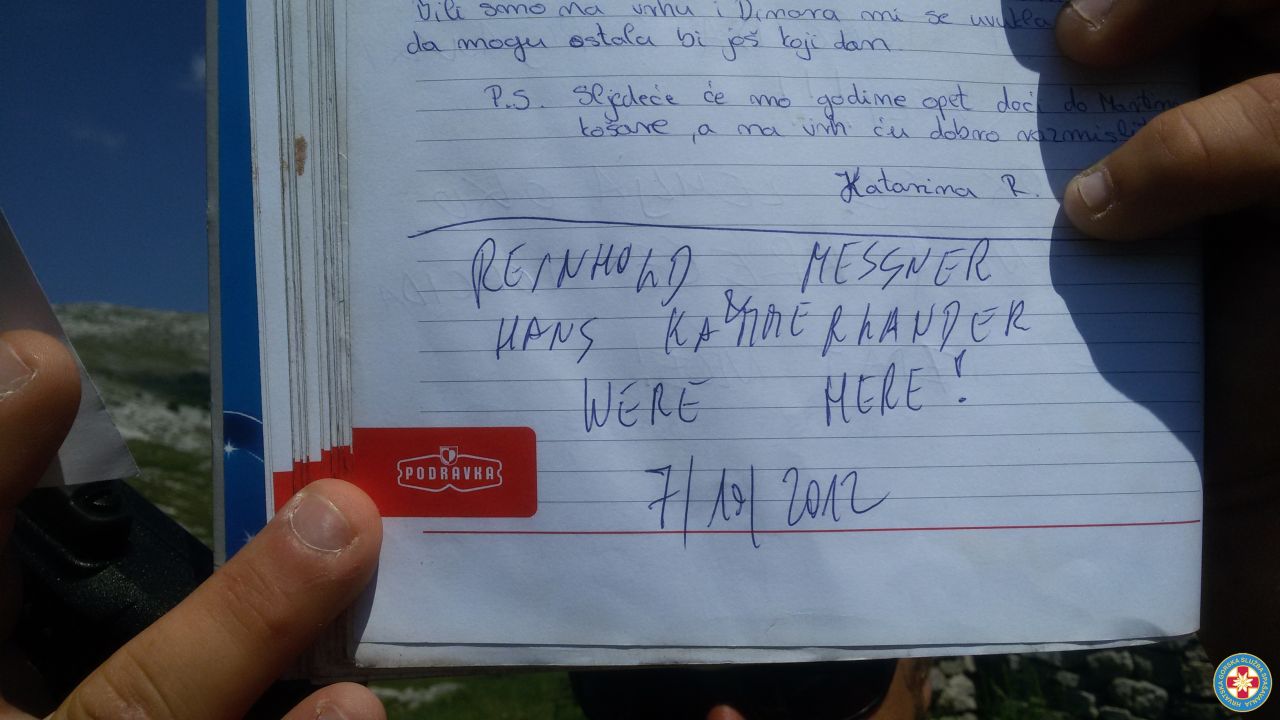 bili samo na vrhu i Dinara mi se uvukla
da mogu ostala bi još koji dan
P.S. Sljedeće će mo godine opet doći do Martin
košare, a na vrh ću dobro razmisli
Katarina R.
REINHOLD MESSNER
HANS KAMMERLANDER
WERE HERE!
7/19/2012
PODRAVKA
HRVATSKA GORSKA SLUŽBA SPAŠAVANJA